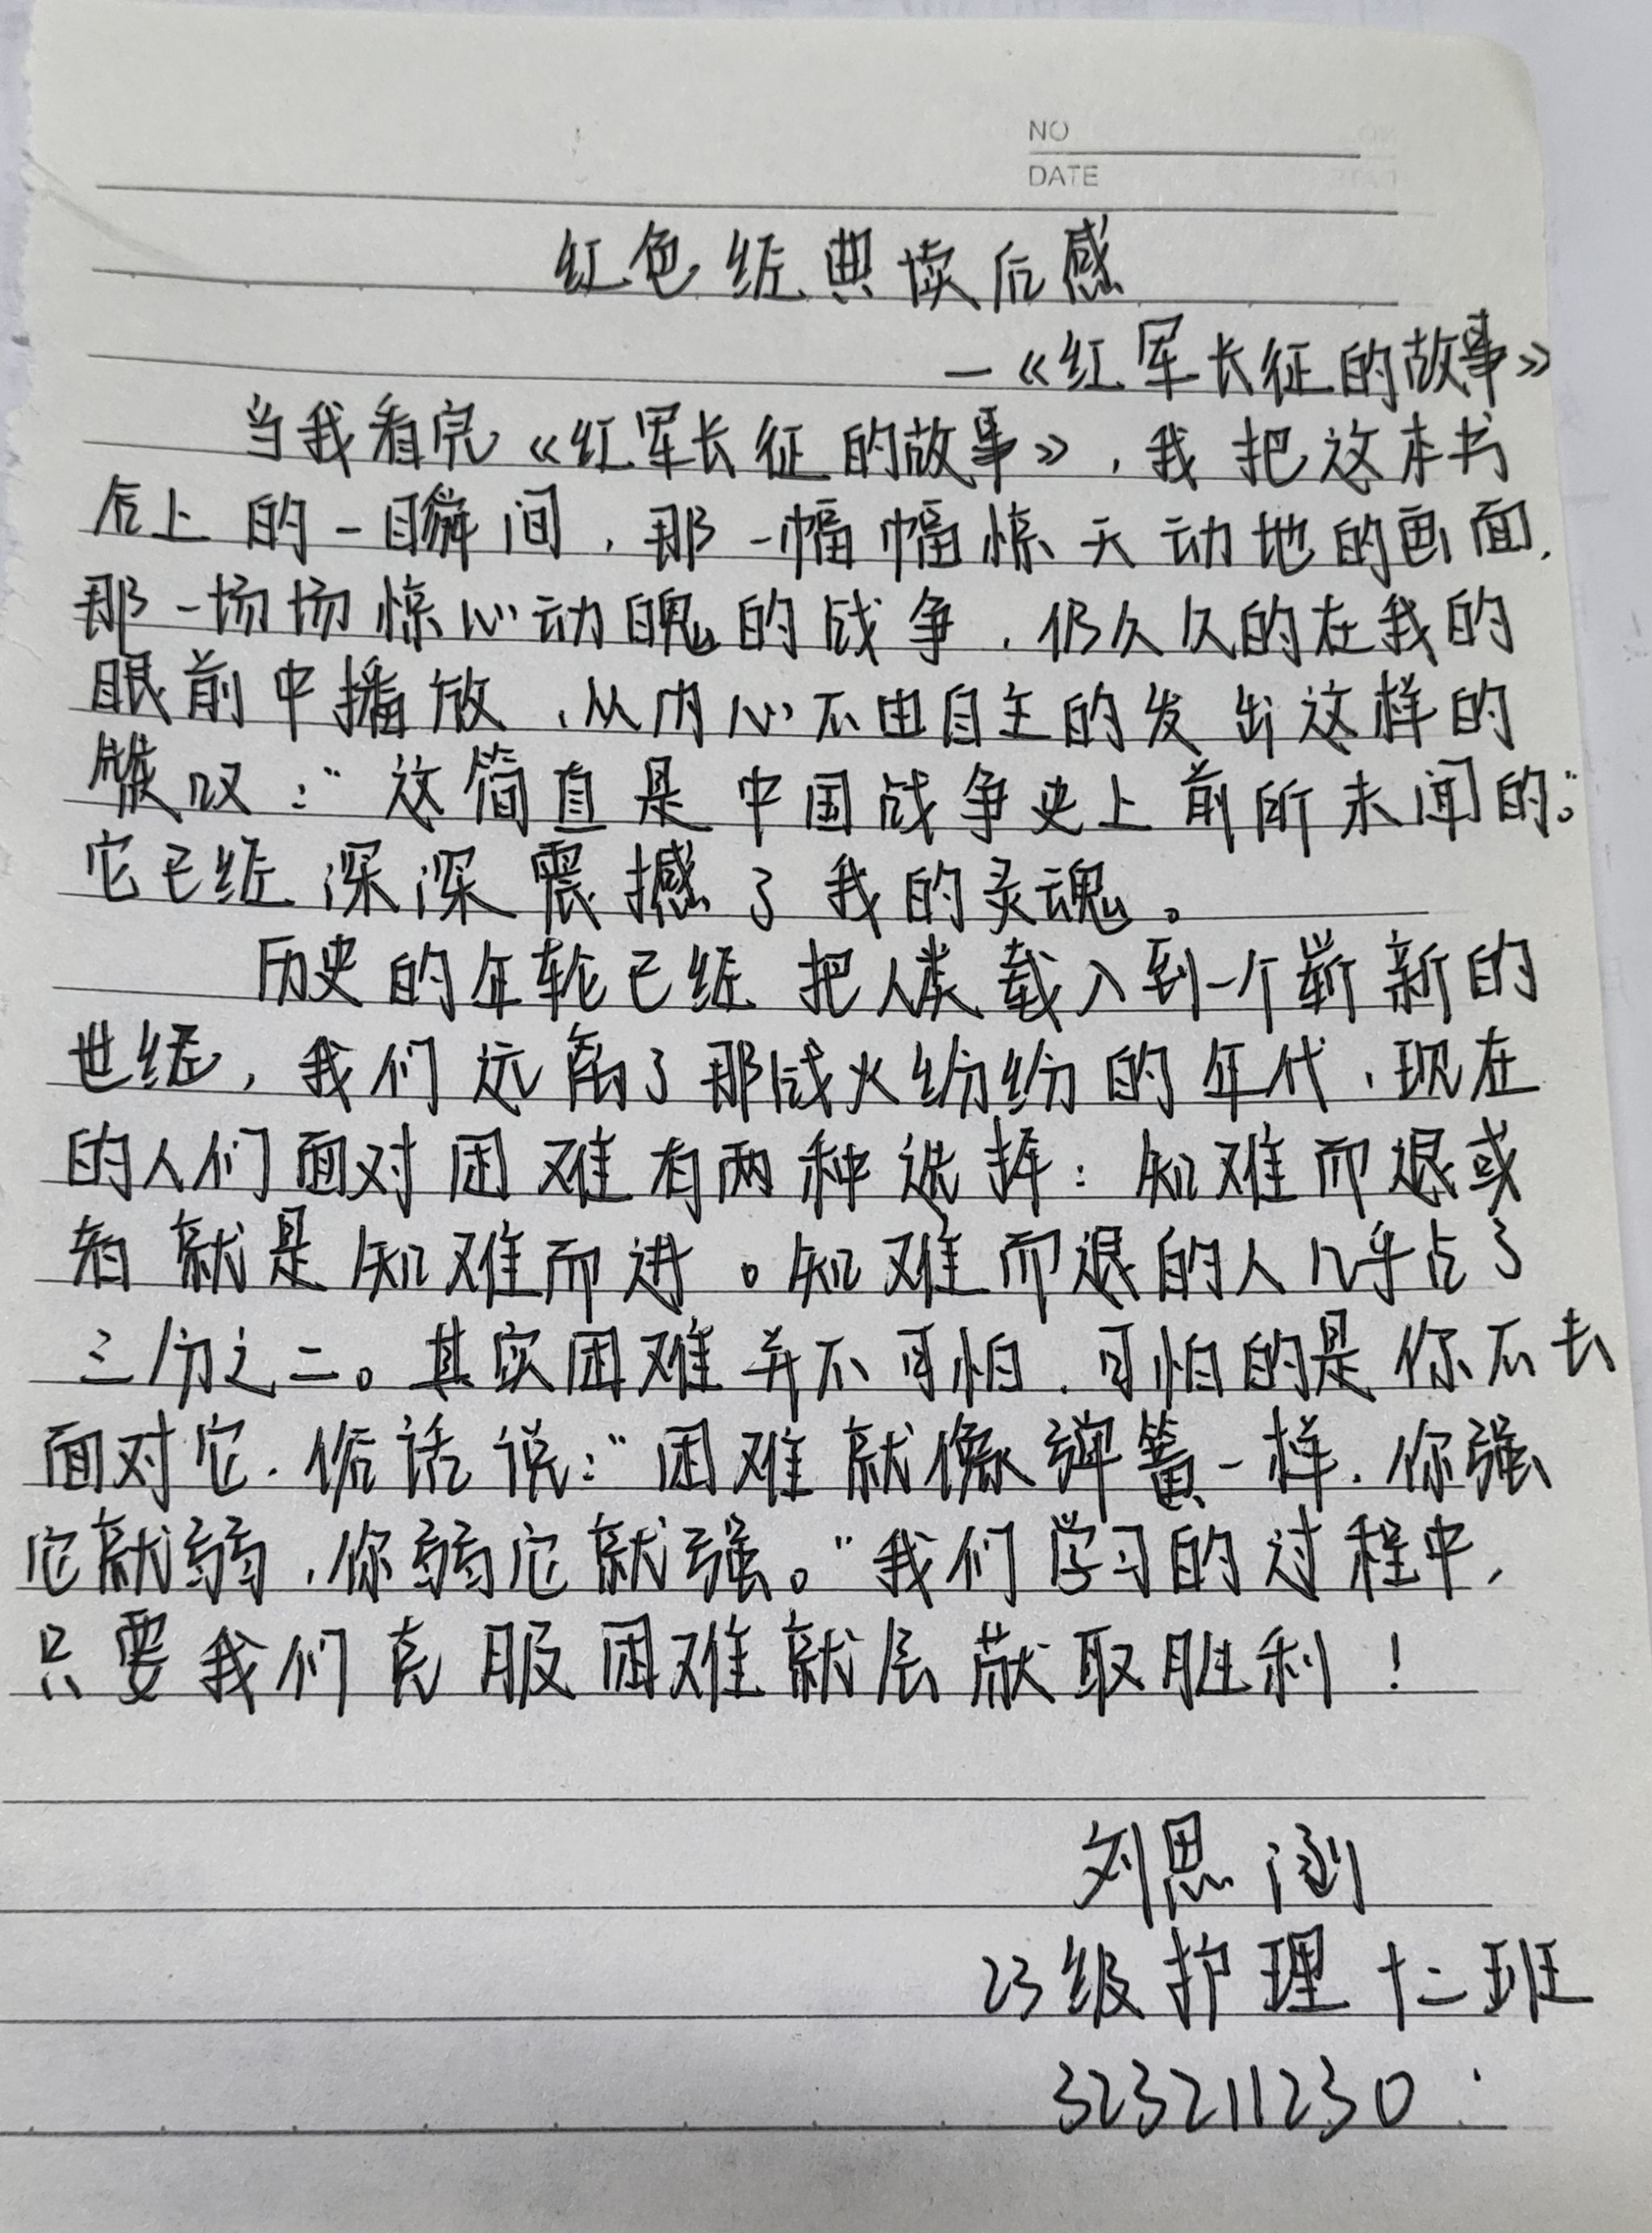 NO
DATE
红色经典读后感
—《红军长征的故事》
当我看完《红军长征的故事》,我把这本书
后上的一瞬间,那一幅幅惊天动地的画面,
那一场场惊心动魄的战争,仍久久的在我的
眼前中播放,从内心不由自主的发出这样的
叹:"这简直是中国战争史上前所未闻的。"
它已经深深震撼了我的灵魂。
历史的年轮已经把人类载入到一个崭新的
世纪,我们远离了那战火纷纷的年代,现在
的人们面对困难有两种选择:知难而退或
者就是知难而进。知难而退的人几乎占了
三分之二。其实困难并不可怕,可怕的是你不去
面对它.俗话说:"困难就像弹簧一样,你强
它就弱,你弱它就强。"我们学习的过程中,
只要我们克服困难就会获取胜利!
刘思涵
23级护理十二班
323211230